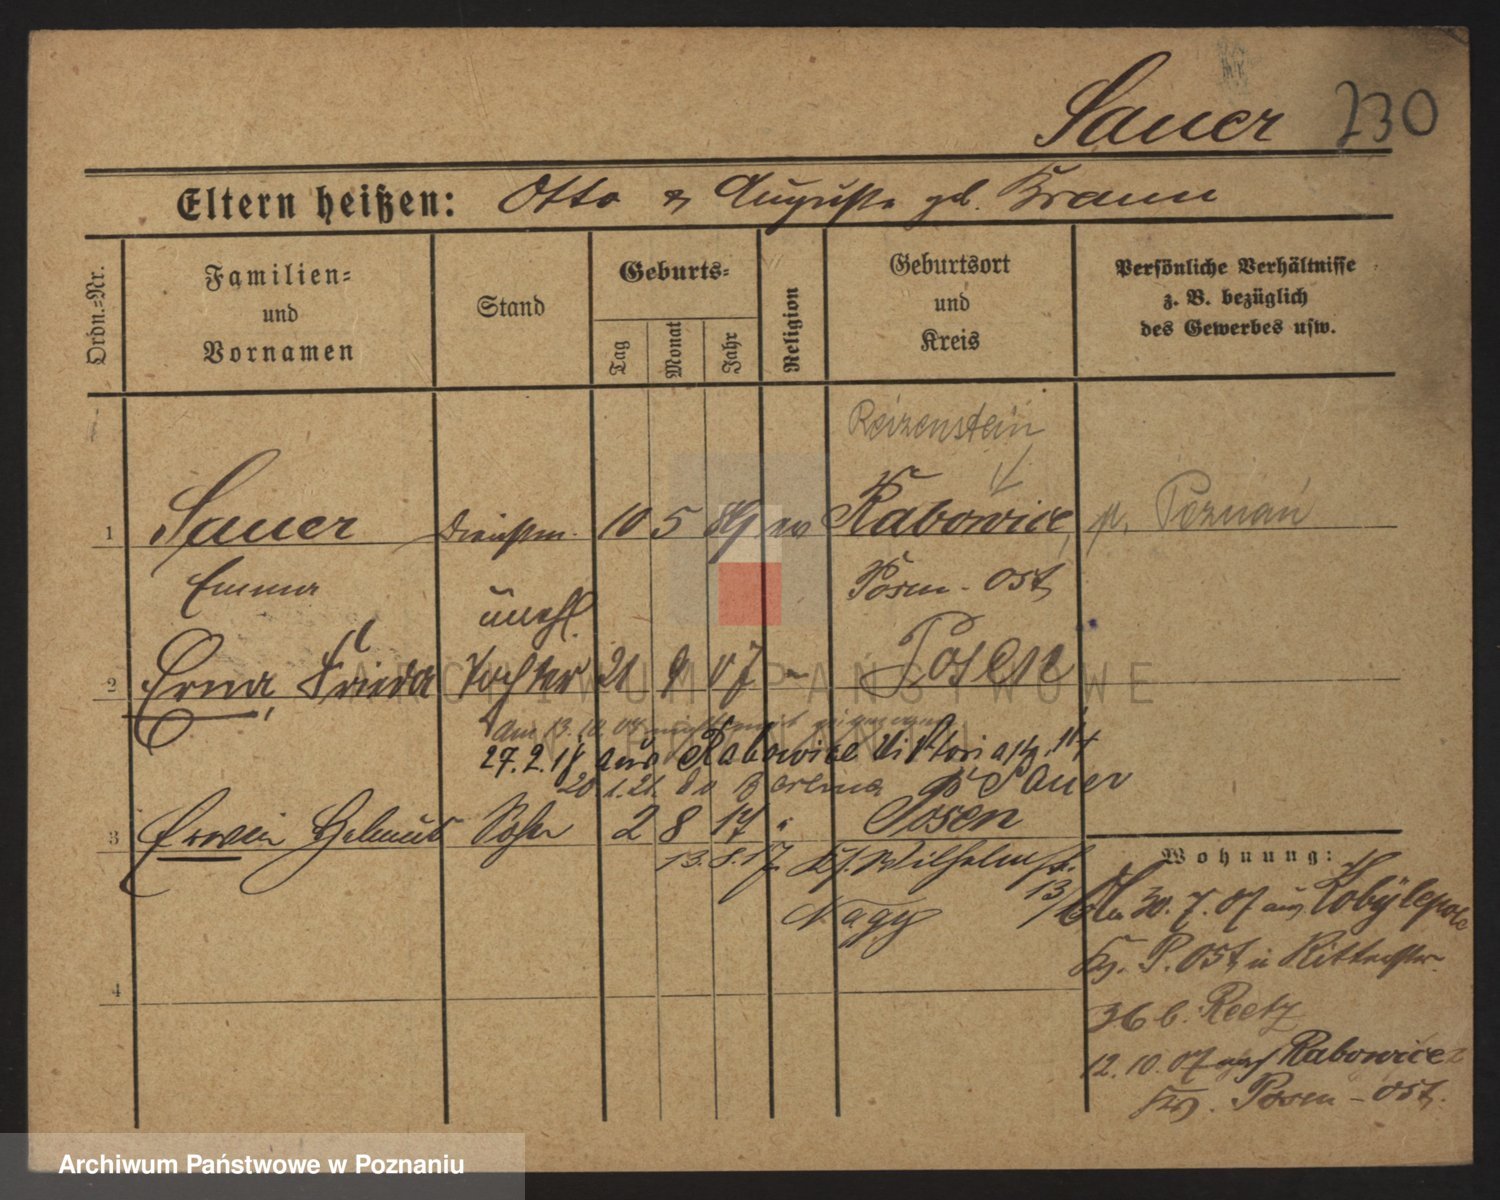 Sauer 230
Eltern heißen: Otto & Auguste geb. Braun
Ordn.=Nr.
Familien=
und
Vornamen
Stand
Geburts=
Tag
Monat
Jahr
Religion
Geburtsort
und
Kreis
Persönliche Verhältnisse
z. B. bezüglich
des Gewerbes usw.
Reizenstein
1 Sauer Dienstm. 10 5 89 ev Rabowice, p. Poznań
Emma Posen-Ost
unehl.
2 Erna, Frieda Tochter 21 9 07 " Posen
Am 13. 10. 07
27.2.18 aus Rabowice Viktoriastr. 14
20.1.21. Sauer
3 Erwin Helmut Sohn 2 8 17 " Posen
13.8.17. Ks. Wilhelmstr.
13/
Nagy
4
Wohnung:
Am 30.7.07 aus Kobylepole
Krs. P. Ost, in Ritterstr.
36 b. Reetz
12.10.07 nach Rabowice
Krs. Posen-Ost.
ARCHIWUM PAŃSTWOWE
W POZNANIU
Archiwum Państwowe w Poznaniu